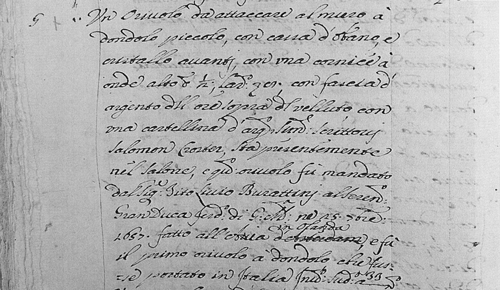 5 Un Oriuolo da attaccare al muro à
dondolo piccolo, con cassa d'Ebano, e
cristallo avanti, con una cornice à
onde alto con fascia d'
argento dell'ore sopra d'velluto con
una cartellina d'arg.
Salomon Coster, sta presentemente
nel Salone, e q.to oriuolo fù mandato
dal Sig.r Tito Livio Burattini al Seren.
Gran Duca ferd. di G. M. ne 25 7bre
1657. fatto all' d'Amsterdam, e fù
in Olanda
il primo oriuolo à dondolo, che fus-
se, portato in Italia